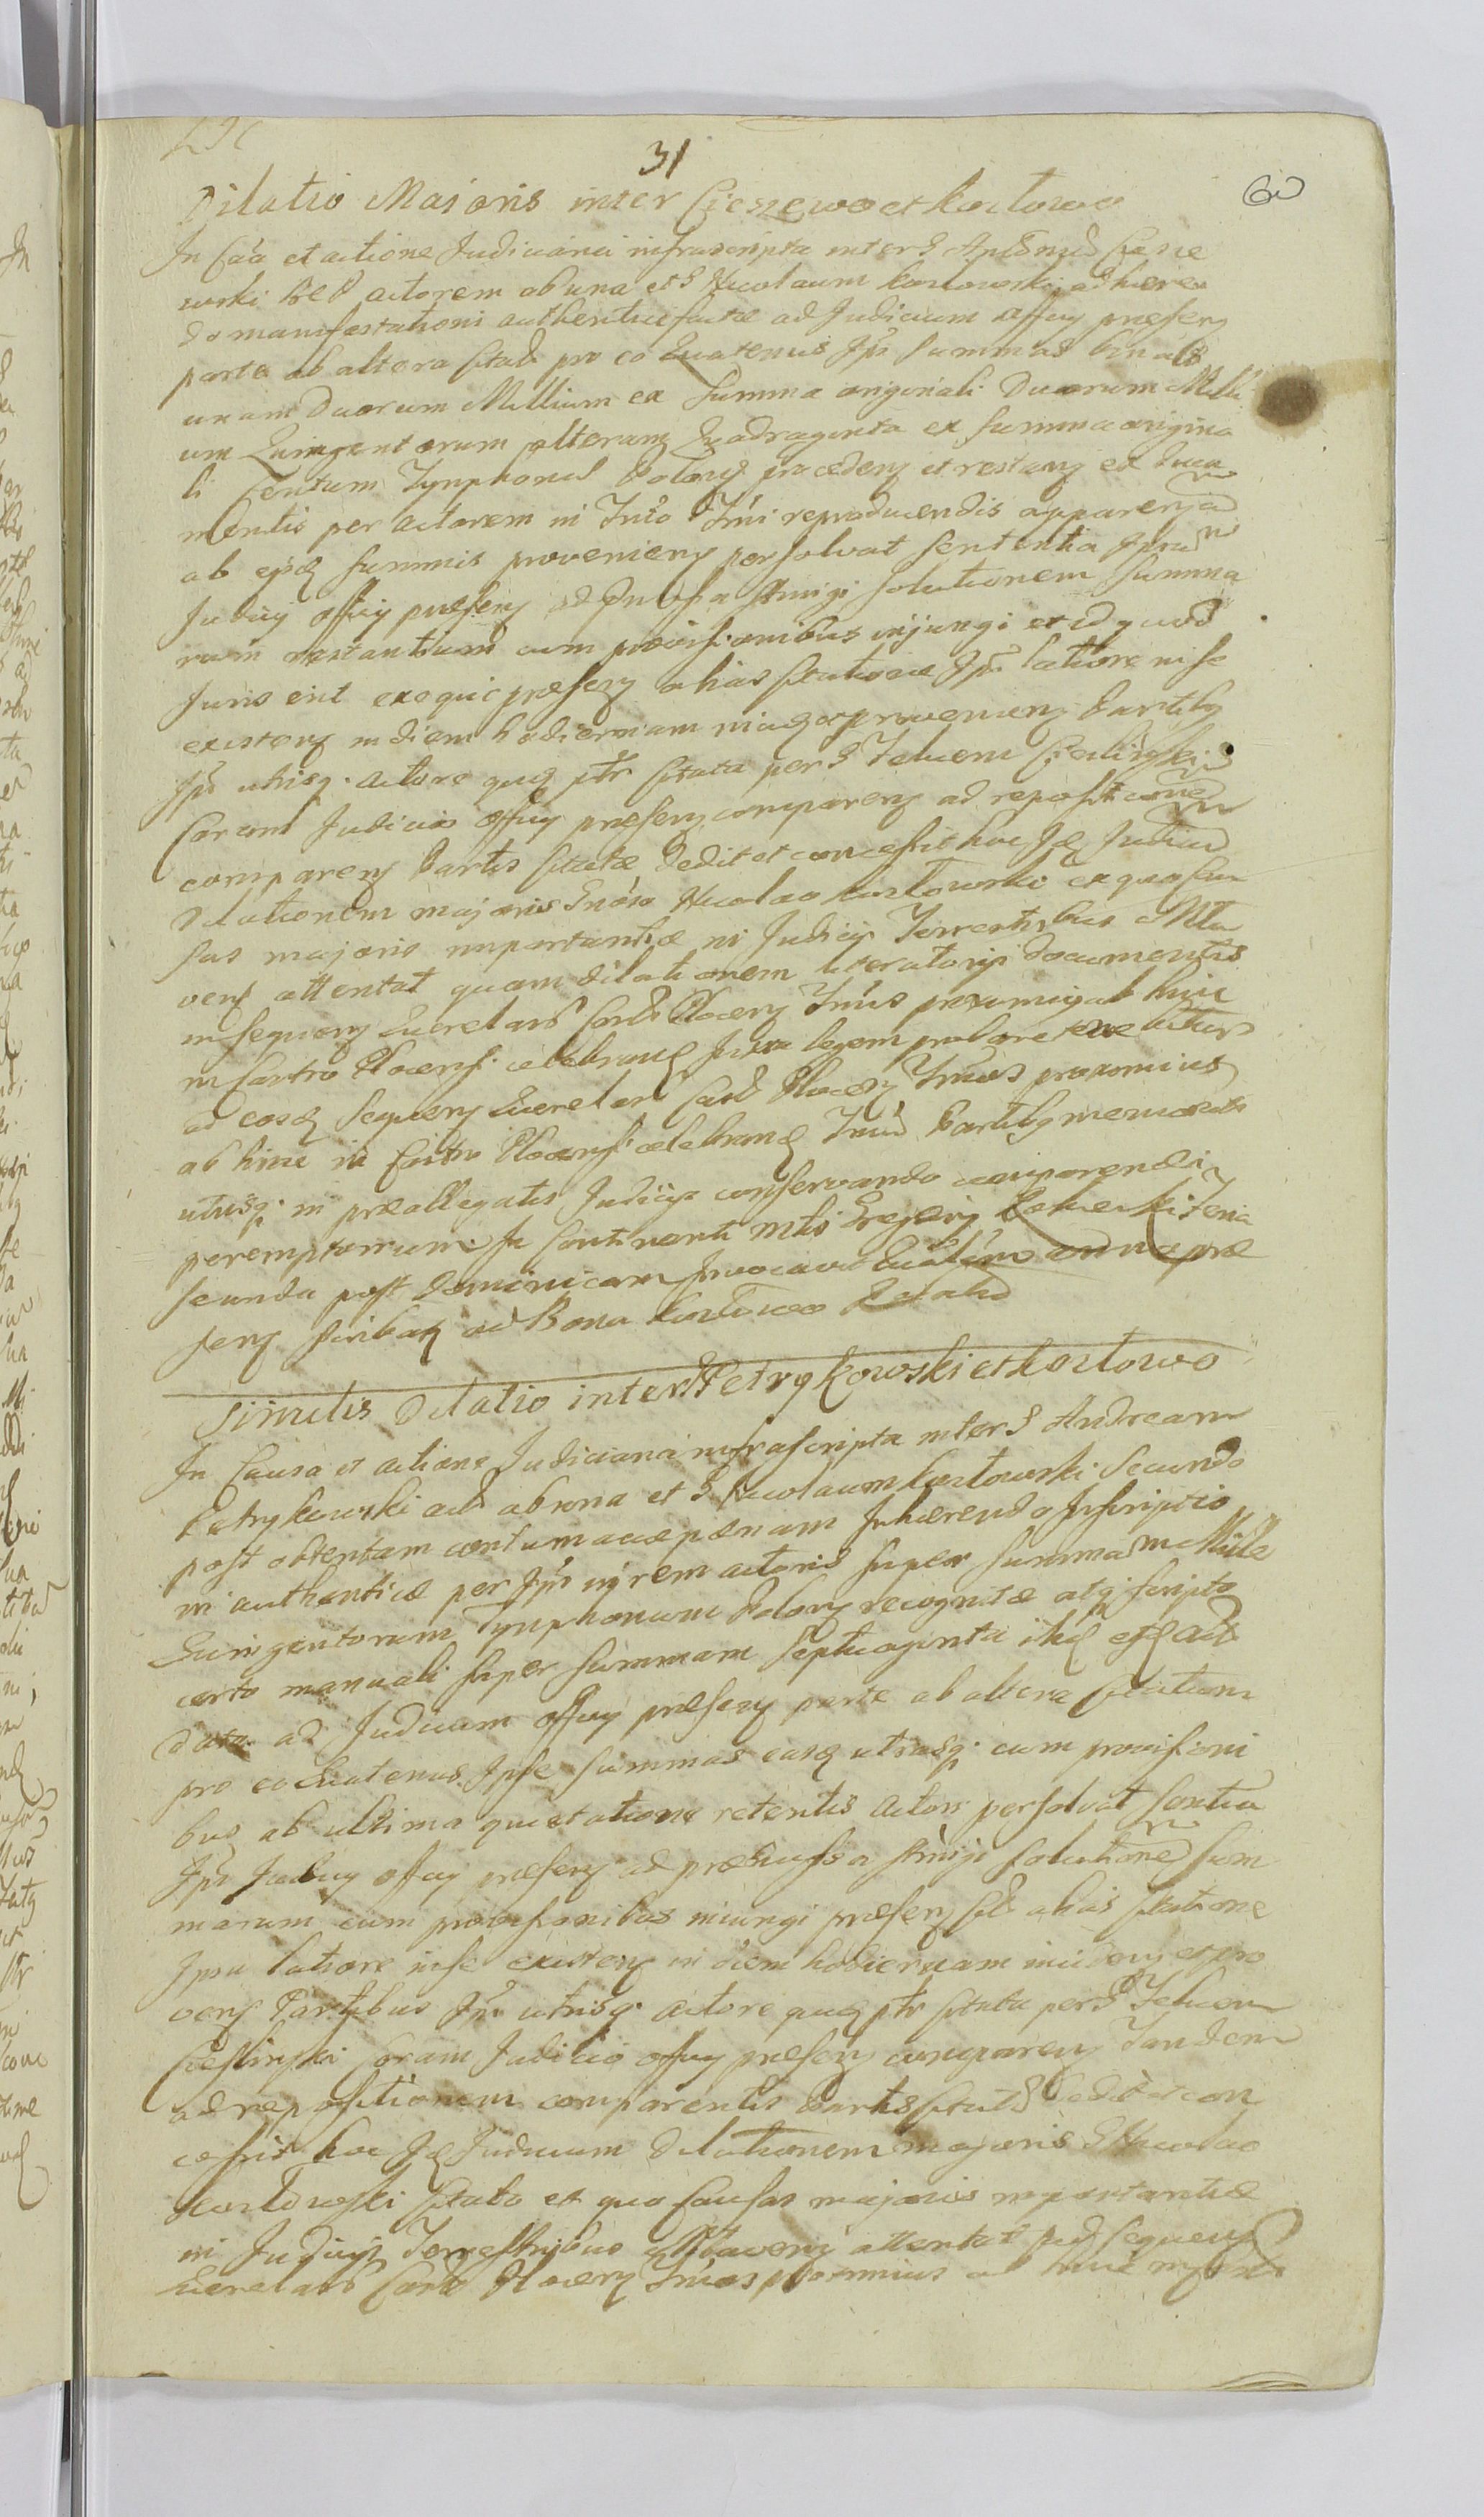 31
Dilatio Majoris inter Cieszewo et Kozłowo
In Caa et actione Judiciaria infrascripta inter G Antonium Ciesze
wski actorem ab una et G Nicolaum Kozłowski adhæren
do manifestationi authentice factæ ad Judicium Officij præsens
parte ab altera Citatum pro eo Quatenus Ipse Summas binas
unam Duorum Millium ex Summa originali Duorum Milli
um Quingentorum alteram Quadraginta ex Summa origina
li Centum Tymphonum Polon procedens et restans ex Docu
mentis per actorem in Tmo Tmi reproducendis apparens
ab ejsdem Summis proveniens persolvat Sententia Ipsum
Judicij Officij præsens ad præmissa stringi Solutionem Summa
rum restantium cum provisionibus injungi et id quod
Juris erit exequi præsens alias Citatione Ipsa latiore in se
existens in diem hodiernam incidens et proveniens Partibus
Ipsis utrisq. actore quidem ptr Citata per G Felicem Cieślinski
Coram Judicio Officij præsens comparens ad repositionem
comparens Partis Citatæ Dedit et concessit hoc Idem Judicium
Dilationem majoris Gnoso Nicolao Kozłowski ex quo Cau
sas majoris importantiæ in Judicijs Terrestribus Mła
vens attentat quam dilationem literatorijs documentis
in sequens Querelarum Cast Plocens Tmis proximius ab hinc
in Castro Plocensi celebrand Juxta legem probare tenebitur
ad eosdem Sequens Querelarum Cast Plocens Tmos proximius
ab hinc in Castro Plocensi celebrand Tmum Partibus memoratis
utrisq. in præallegatis Judicijs conservando comparendi
peremptorium In Continenti Mtis Gregorij Feria
secunda post Dominicam Invocavit Quadragesimæ anno præ
sens Scribat ad Bona Kozłowo Relatio
Similis Dilatio inter Petrykowski et Kozłowo
In Causa et actione Judiciaria infrascripta inter G Andream
Petrykowski act ab una et G Nicolaum Kozłowski Secundo
post obtentam contumaciæ pænam Inhærendo Inscriptio
ni authenticæ per Ipsum in rem actoris super Summam Mille
Quingentorum Tymphonum Polon recognitæ atq. scripto
certo manuali super Summam Septuaginta itidem ejsdem act
data ad Judicium Officij præsens parte ab altera Citatum
pro eo Quatenus Ipse Summas easdem utrasq. cum provisioni
bus ab ultima quietatione retentis actori persolvat Sentia
Ipsum Judicij Officij præsens ad præmissa stringi Solutionem Sum
marum cum provisionibus iniungi præsens alias Citatione
Ipsa latiore in se existens in diem hodiernam incidens et pro
vens Partibus Ipsis utrisq. actore quidem ptr Citata per G Felicem
Cieślinski Coram Judicio Officij præsens comparens Tandem
ad repositionem comparentis Partis Citatæ Dedit et con
cessit hoc Idem Judicium Dilationem majoris G Nicolao
Kozłowski Citato ex quo Causas majoris importantiæ
in Judicijs Terrestribus Mławens attentat Ad Sequens
Querelarum Cast Plocens Tmos proximius ab hinc in Castro